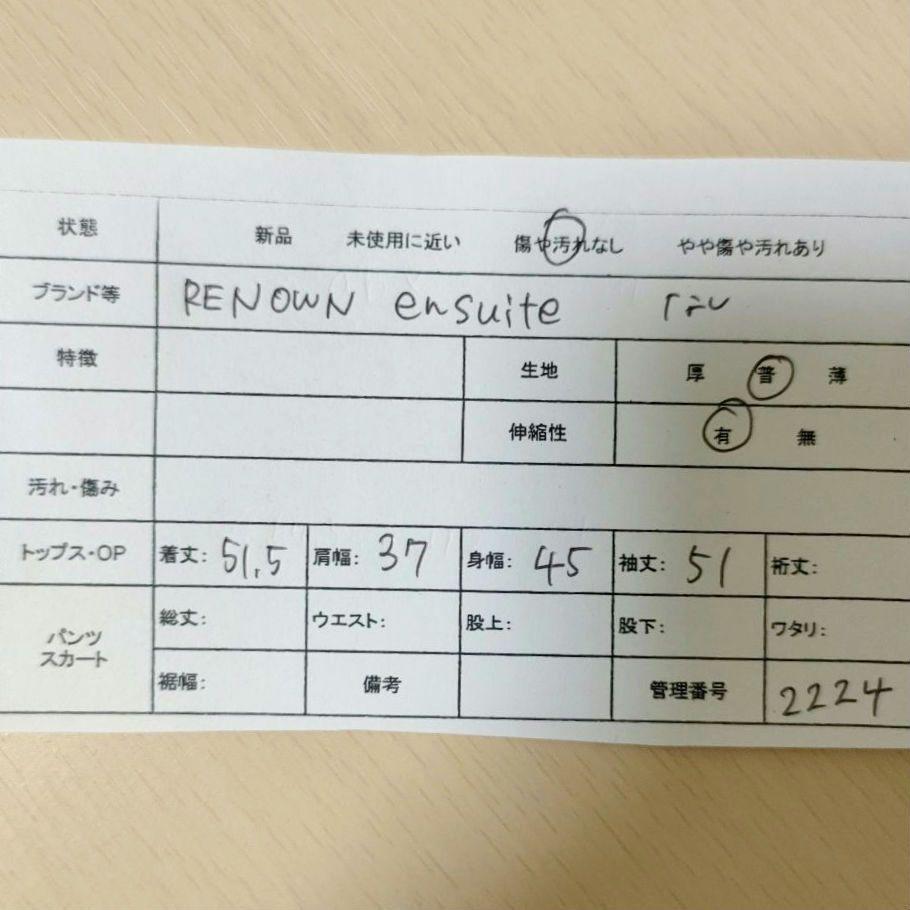 状態 新品 未使用に近い 傷や汚れなし やや傷や汚れあり
ブランド等 RENOWN ensuite
特徴 生地 厚 普 薄
伸縮性 有 無
汚れ・傷み
トップス・OP 着丈: 51.5 肩幅: 37 身幅: 45 袖丈: 51 裄丈:
パンツ スカート 総丈: ウエスト: 股上: 股下: ワタリ:
裾幅: 備考 管理番号 2224